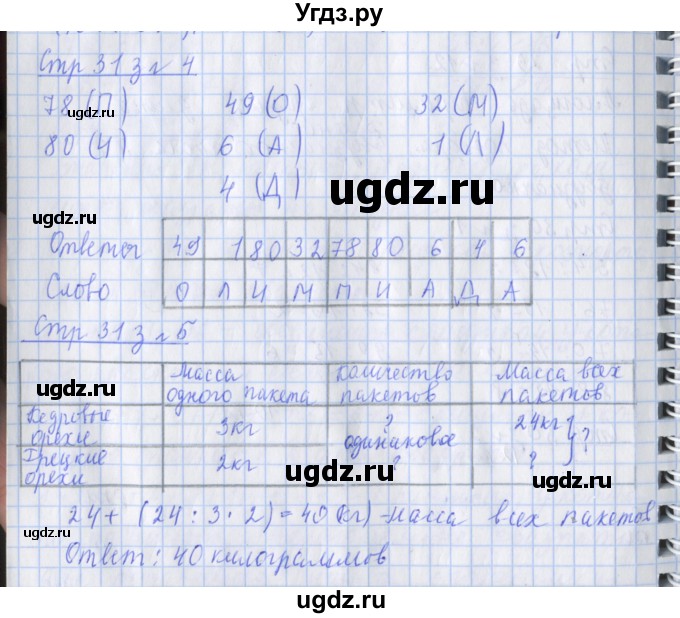 Угдз.ру
Стр 31 з № 4
78 (П) 49 (О) 32 (М)
ugdz.ru
80 (И) 6 (А) 1 (Л)
4 (Д) ugdz.ru
ugdz.ru
Ответы 49 1 80 32 78 80 6 4 6
Слово О Л И М П И А Д А
Стр 31 з № 5
ugdz.ru
Масса одного пакета Количество пакетов Масса всех пакетов
ugdz.ru
Кедровые орехи 3кг ? 24кг
одинаковое ?
Грецкие орехи 2кг ? ?
ugdz.ru
ugdz.ru
24 + (24 : 3 · 2) = 40 (кг) - масса всех пакетов
ugdz.ru
Ответ: 40 килограммов
ugdz.ru